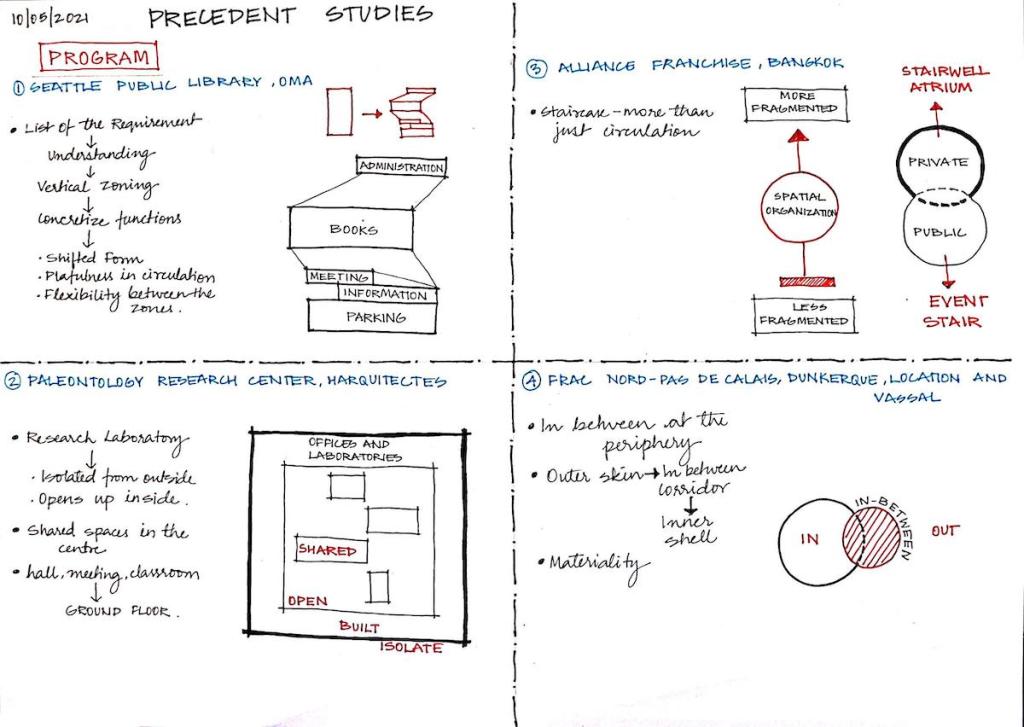 10/05/2021
PRECEDENT STUDIES
PROGRAM
① SEATTLE PUBLIC LIBRARY, OMA
• List of the Requirement
↓
Understanding
↓
Vertical Zoning
↓
Concretize functions
↓
• Shifted Form
• Plafulness in circulation
• Flexibility between the
zones.
ADMINISTRATION
BOOKS
MEETING
INFORMATION
PARKING
③ ALLIANCE FRANCHISE, BANGKOK
• Staircase – more than
just circulation
MORE
FRAGMENTED
SPATIAL
ORGANIZATION
LESS
FRAGMENTED
STAIRWELL
ATRIUM
PRIVATE
PUBLIC
EVENT
STAIR
② PALEONTOLOGY RESEARCH CENTER, HARQUITECTES
• Research Laboratory
↓
• Isolated from outside
• Opens up inside.
• Shared spaces in the
centre
• hall, meeting, classroom
↓
GROUND FLOOR.
OFFICES AND
LABORATORIES
SHARED
OPEN
BUILT
ISOLATE
④ FRAC NORD-PAS DE CALAIS, DUNKERQUE, LOCATION AND
VASSAL
• In between at the
periphery
• Outer skin → In between
corridor
↓
Inner
shell
• Materiality
IN
IN-BETWEEN
OUT